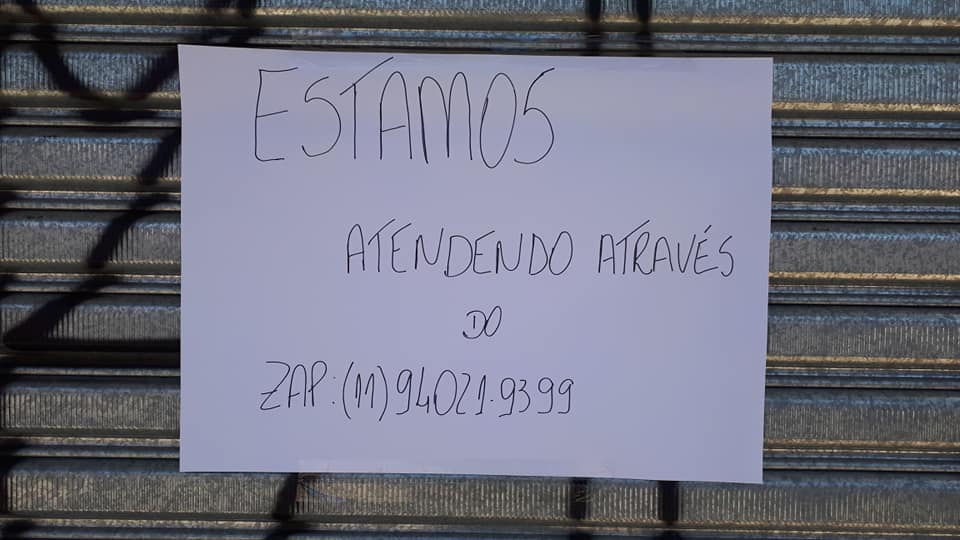 ESTAMOS
ATENDENDO ATRAVÉS
DO
ZAP: (11) 94021.9399